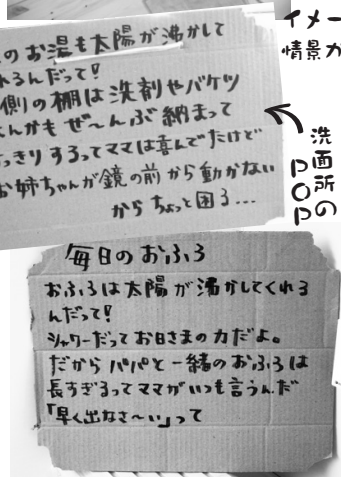 のお湯も太陽が沸かして
れるんだって!
側の棚は洗剤やバケツ
んかもぜ〜んぶ納まって
っきりするってママは喜んでたけど
お姉ちゃんが鏡の前から動かない
からちょっと困る…
イメー
情景が
洗面所の
POP
毎日のおふろ
おふろは太陽が沸かしてくれる
んだって!
シャワーだってお日さまの力だよ。
だからパパと一緒のおふろは
長すぎるってママがいつも言うんだ
「早く出なさ〜い」って